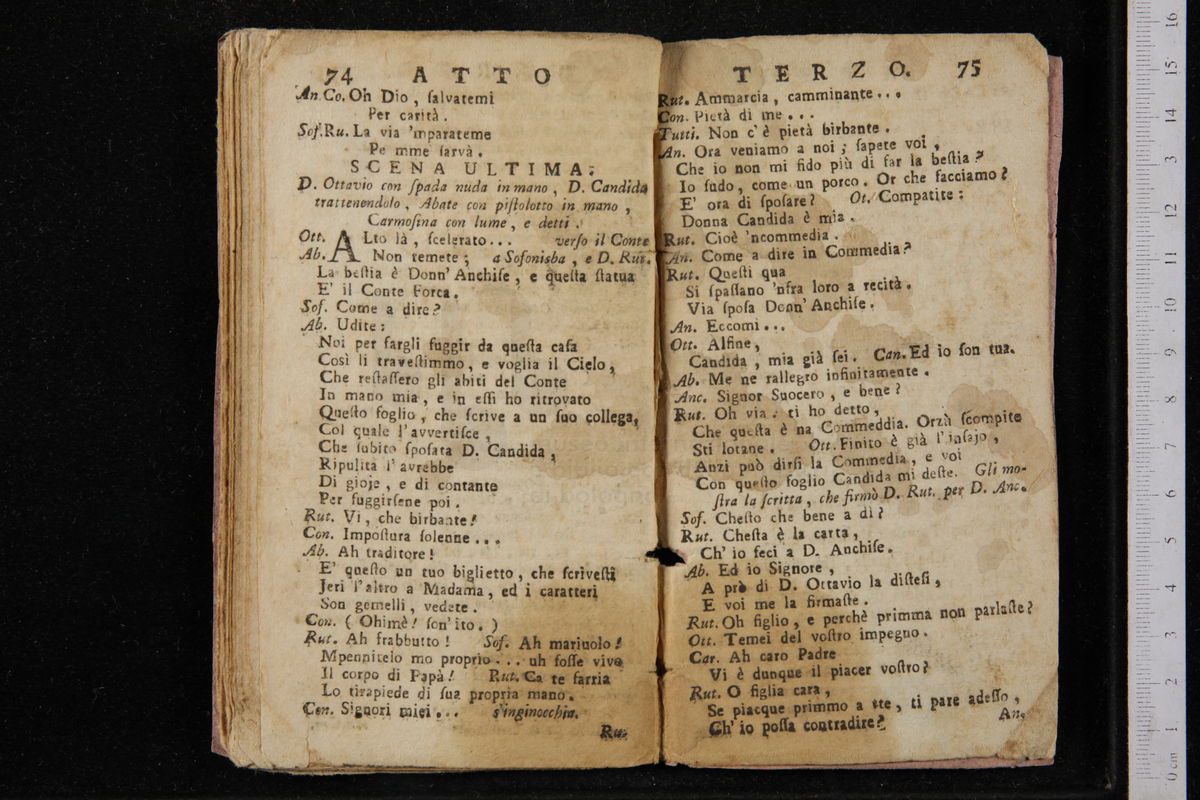 74 ATTO
An.Co. Oh Dio, ſalvatemi
Per carità.
Sof.Ru. La via 'mparateme
Pe mme ſarvà.
SCENA ULTIMA.
D. Ottavio con ſpada nuda in mano, D. Candida
trattenendolo, Abate con piſtolotto in mano,
Carmoſina con lume, e detti.
Ott. ALto là, ſcelerato... verſo il Conte
Ab. Non temete; a Sofonisba, e D. Rut.
La beſtia è Donn' Anchiſe, e queſta ſtatua
E' il Conte Forca.
Sof. Come a dire?
Ab. Udite:
Noi per fargli fuggir da queſta caſa
Così li traveſtimmo, e voglia il Cielo,
Che reſtaſſero gli abiti del Conte
In mano mia, e in eſſi ho ritrovato
Queſto foglio, che ſcrive a un ſuo collega,
Col quale l'avvertiſce,
Che ſubito ſpoſata D. Candida,
Ripulita l'avrebbe
Di gioje, e di contante
Per fuggirſene poi.
Rut. Vi, che birbante!
Con. Impoſtura ſolenne...
Ab. Ah traditore!
E' queſto un tuo biglietto, che ſcriveſti
Jeri l'altro a Madama, ed i caratteri
Son gemelli, vedete.
Con. (Ohimè! ſon'ito.)
Rut. Ah frabbutto! Sof. Ah mariuolo!
Mpennitelo mo proprio... uh foſſe vivo
Il corpo di Papà! Rut. Ca te farria
Lo tirapiede di ſua propria mano.
Con. Signori miei... s'inginocchia.
Ru.
TERZO. 75
Rut. Ammarcia, camminante...
Con. Pietà di me...
Tutti. Non c'è pietà birbante.
An. Ora veniamo a noi; ſapete voi,
Che io non mi fido più di far la beſtia?
Io ſudo, come un porco. Or che facciamo?
E' ora di ſpoſare? Ot. Compatite:
Donna Candida è mia.
Rut. Cioè 'ncommedia.
An. Come a dire in Commedia?
Rut. Queſti qua
Si ſpaſſano 'nfra loro a recità.
Via ſpoſa Donn' Anchiſe.
An. Eccomi...
Ott. Alfine,
Candida, mia già ſei. Can. Ed io ſon tua.
Ab. Me ne rallegro infinitamente.
Anc. Signor Suocero, e bene?
Rut. Oh via: ti ho detto,
Che queſta è na Commeddia. Orzù ſcompite
Sti lotane. Ott. Finito è già l'inſajo,
Anzi può dirſi la Commedia, e voi
Con queſto foglio Candida mi deſte. Gli mo-
ſtra la ſcritta, che firmò D. Rut. per D. Anc.
Sof. Cheſto che bene a dì?
Rut. Cheſta è la carta,
Ch' io feci a D. Anchiſe.
Ab. Ed io Signore,
A prò di D. Ottavio la diſteſi,
E voi me la firmaſte.
Rut. Oh figlio, e perchè primma non parlaſte?
Ott. Temei del voſtro impegno.
Car. Ah caro Padre
Vi è dunque il piacer voſtro?
Rut. O figlia cara,
Se piacque primmo a tte, ti pare adeſſo,
Ch' io poſſa contradire?
An.
0 cm 1 2 3 4 5 6 7 8 9 10 11 12 13 14 15 16